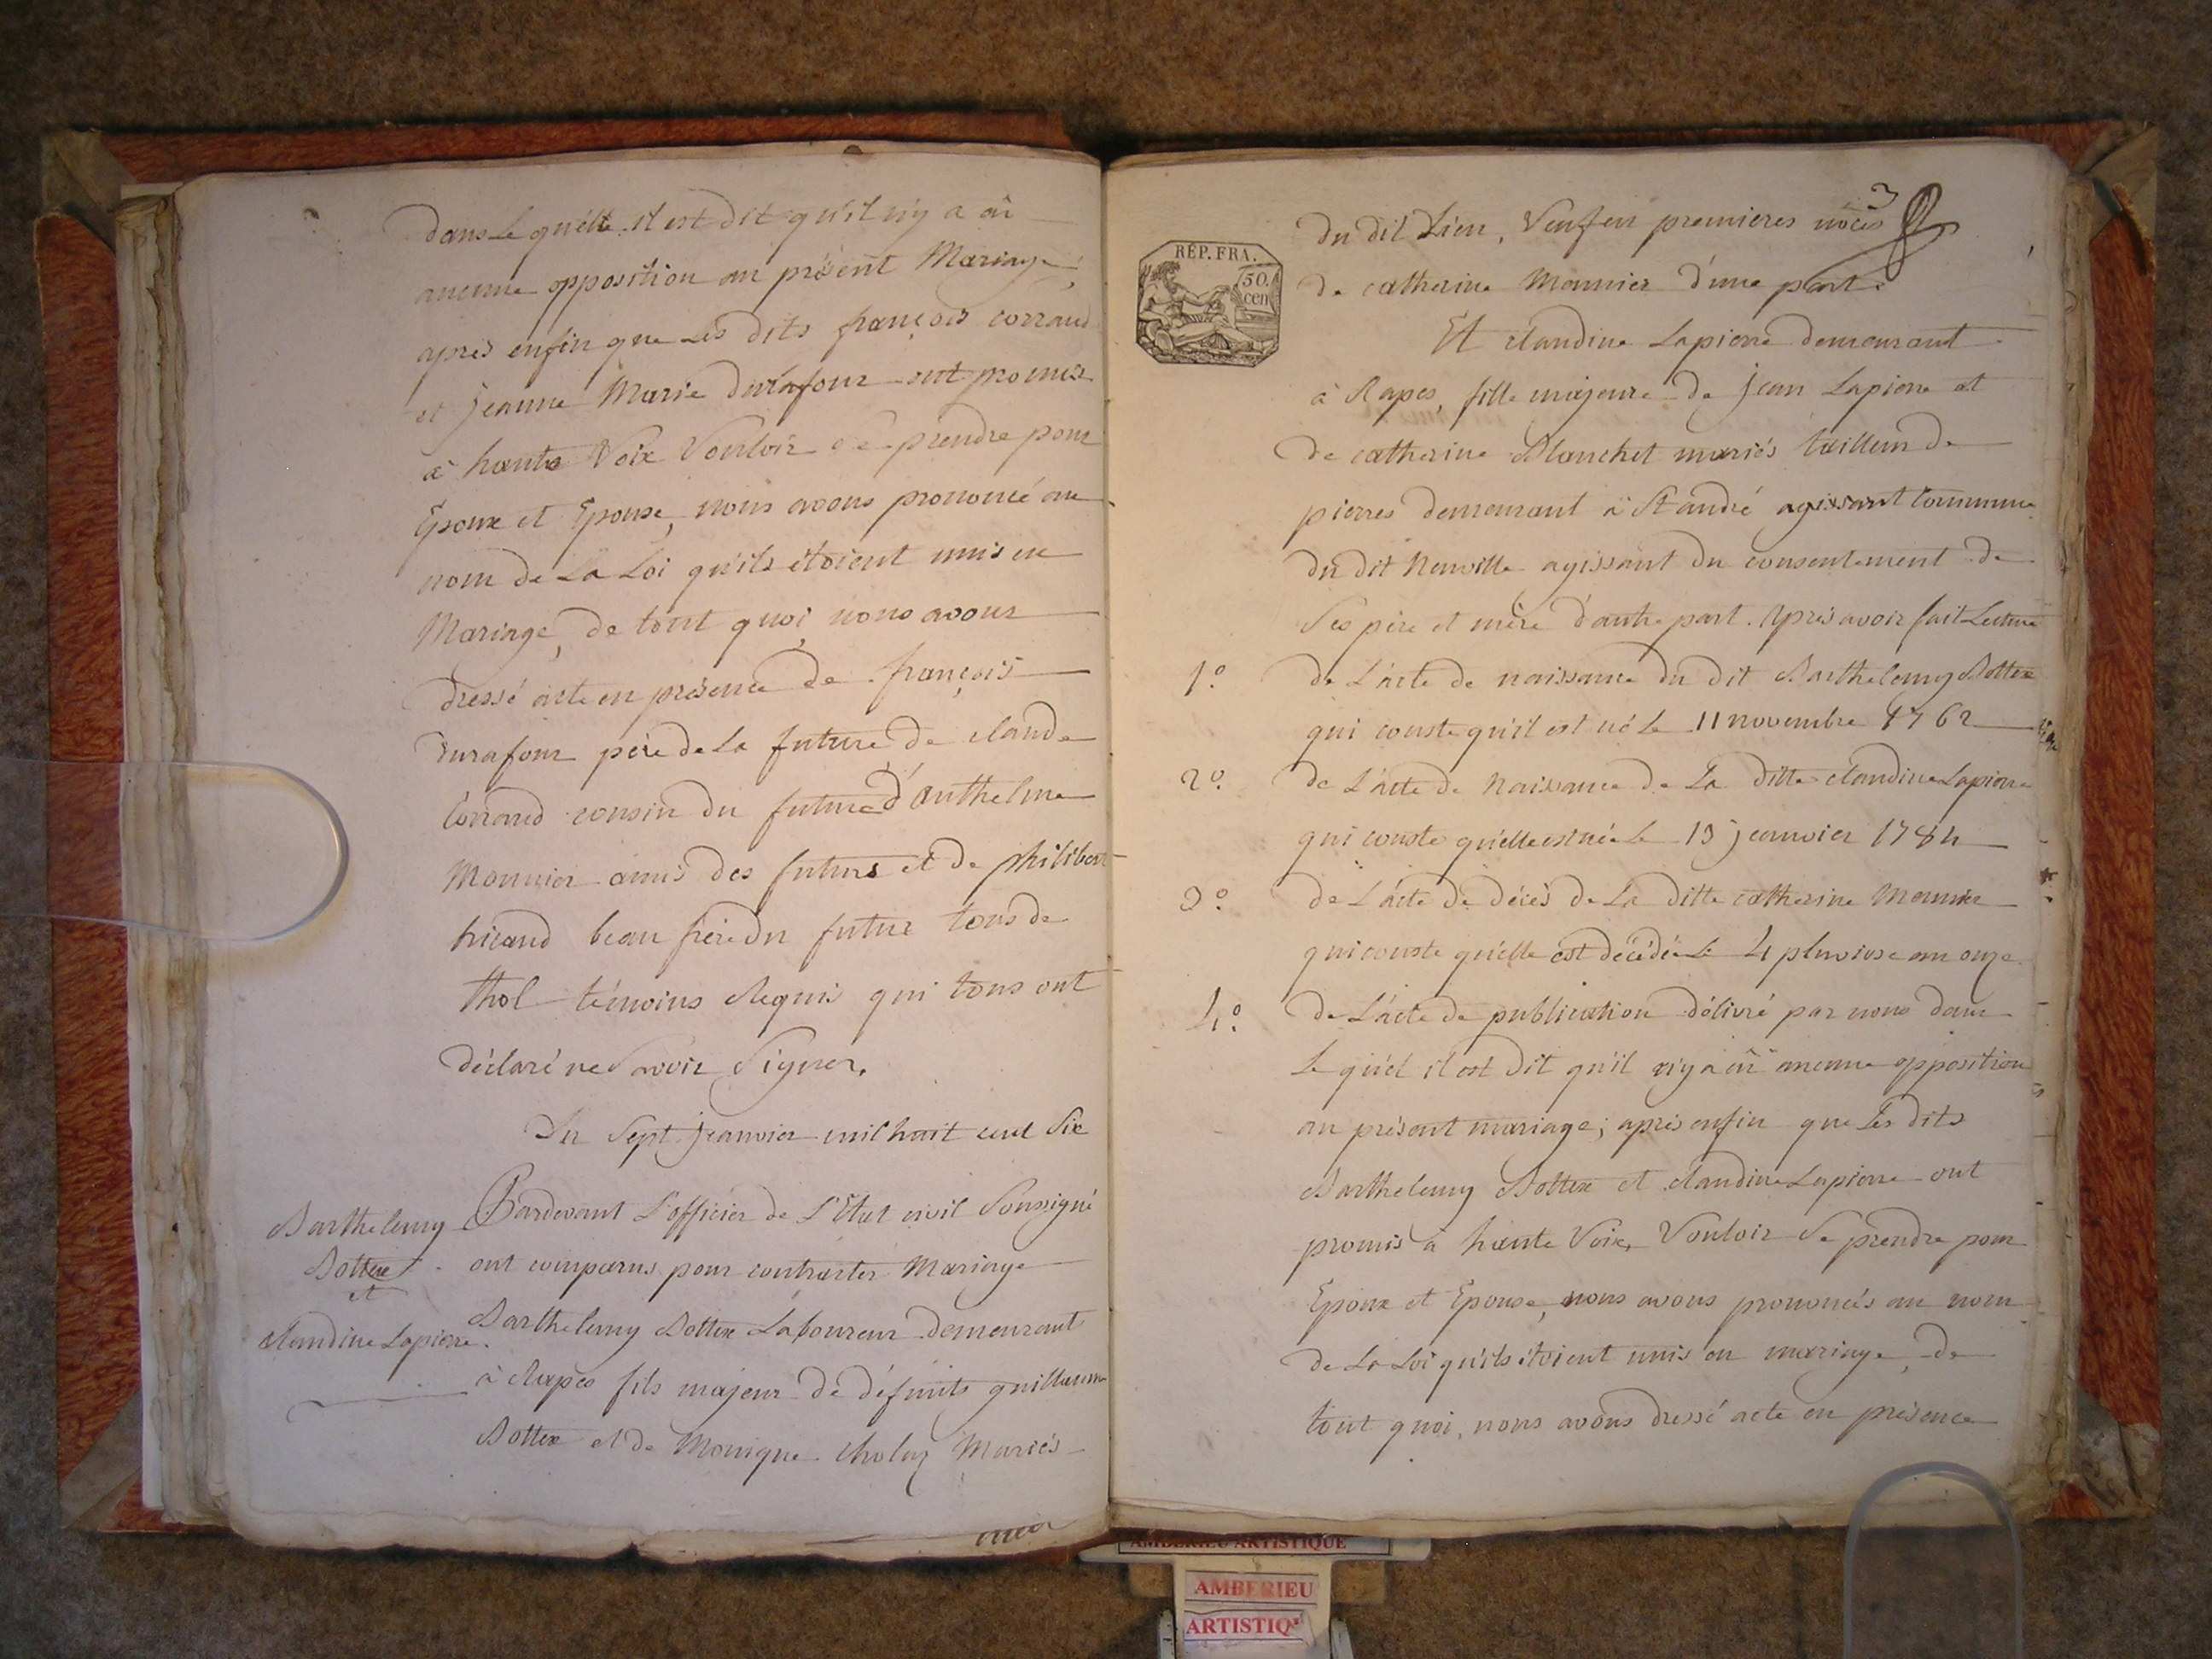 dans Le quélle il est dit qu'il n'y a éü
aucune opposition au présent Mariage,
après enfin que Les dits françois corraud
et jeanne Marie durafour ont promis
à haute Voix Vouloir se prendre pour
Epoux et Epouse, nous avons prononcé au
nom de La Loi qu'ils étoient unis en
Mariage, de tout quoi nous avons
dressé acte en présence de françois
durafour père de La future, de claude
Corraud cousin du futur d'Anthelme
Monnier amis des futurs et de philibert
hicaud beau frère du futur tous de
thol témoins Requis qui tous ont
déclaré ne Savoir Signer.
Du Sept Jeanvier mil huit cent Six
Barthelemy
Bottex
et
claudine Lapierre.
Pardevant L'officier de L'Etat civil Soussigné
ont comparus pour contracter Mariage
Barthelemy Bottex Laboureur demeurant
à Rapes fils majeur de défunts guillaume
Bottex et de Monique Mariés
3
RÉP. FRA.
50.
cen
du dit Lieu, Veuf en premieres nôces
de catherine Monnier d'une part.
Et claudine Lapierre demeurant
à Rapes, fille majeure de jean Lapierre et
de catherine Blanchet mariés tailleur de
pierres demeurant à St andré agissant Commune
du dit Neuville agissant du consentement de
Ses père et mère d'autre part. Après avoir fait Lecture
1.° de L'acte de naissance du dit Barthelemy Bottex
qui conste qu'il est né Le 11 novembre 1762
2.° de L'acte de Naissance de La ditte claudine Lapierre
qui conste quélle est née Le 13 jeanvier 1784
3.° de L'acte de décès de La ditte catherine Monnier
qui conste qu'elle est décédée Le 4 pluviose an onze
4.° de L'acte de publication délivré par nous dans
Le quél il est dit qu'il n'y a éü aucune opposition
au présent mariage; après enfin que Les dits
Barthelemy Bottex et claudine Lapierre ont
promis à haute Voix, Vouloir Se prendre pour
Epoux et Epouse, nous avons prononcés au nom
de La Loi qu'ils étoient unis en mariage, de
tout quoi, nous avons dressé acte en présence
AMBERIEU ARTISTIQUE
AMBERIEU
ARTISTIQ